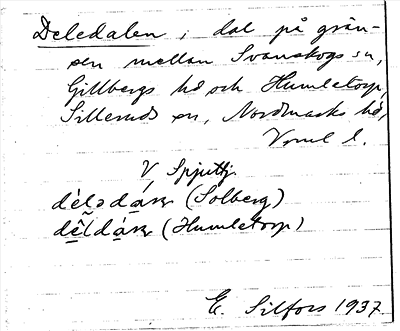 Deledalen, i dal på grän-
sen mellan Svanskogs sn,
Gillbergs hd och Humletorp,
Silleruds sn, Nordmarks hd,
Vrml l.
V Spjuttj.
(Solberg)
(Humletorp)
E. Silfors 1937.